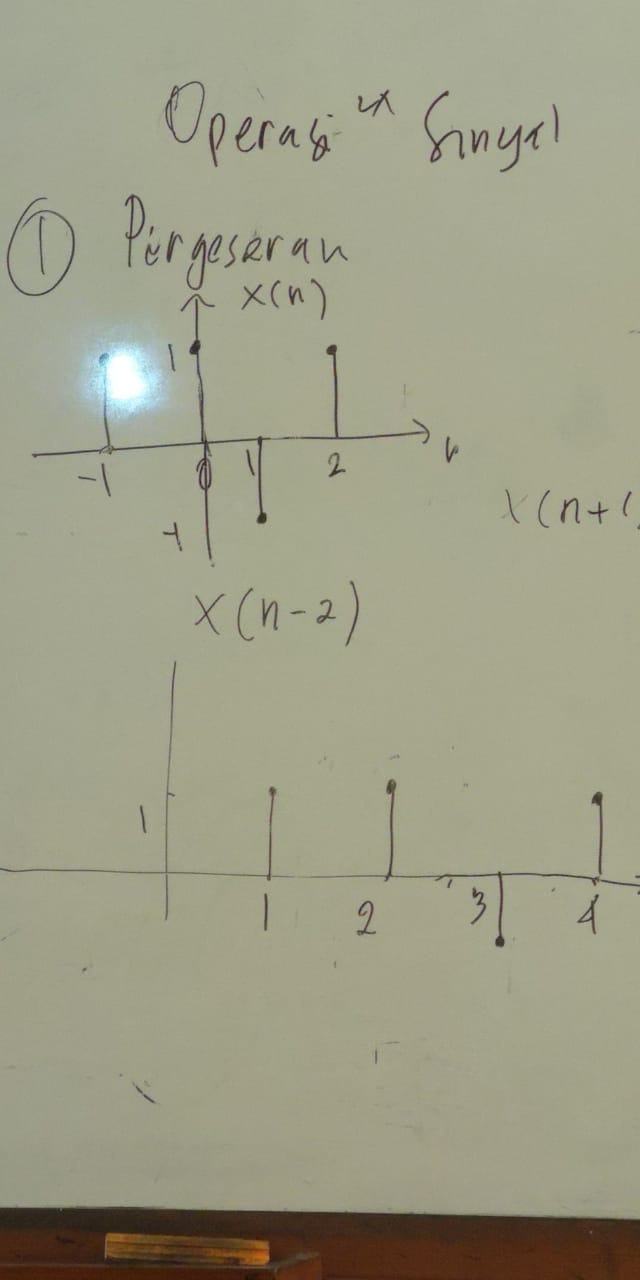 Operasi² Sinyal
① Pergeseran
x(n)
1
-1 0 1 2 n
-1
x(n+1
x(n-2)
1
1 2 3 4